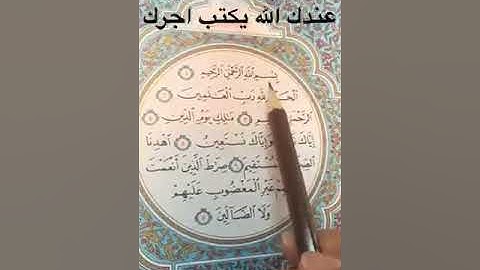 عندك الله يكتب اجرك
بِسْمِ ٱللَّهِ ٱلرَّحْمَٰنِ ٱلرَّحِيمِ ١
ٱلْحَ لِلَّهِ رَبِّ ٱلْعَٰلَمِينَ
ٱلرَّحْمَٰ مَٰلِكِ يَوْمِ ٱلدِّينِ
إِيَّاكَ نَ وَإِيَّاكَ نَسْتَعِينُ ٱهْدِنَا
ٱلصِّ ٱلْمُسْتَقِيمَ صِرَٰطَ ٱلَّذِينَ أَنْعَمْتَ
غَيْرِ ٱلْمَغْضُوبِ عَلَيْهِمْ
وَلَا ٱلضَّآلِّينَ